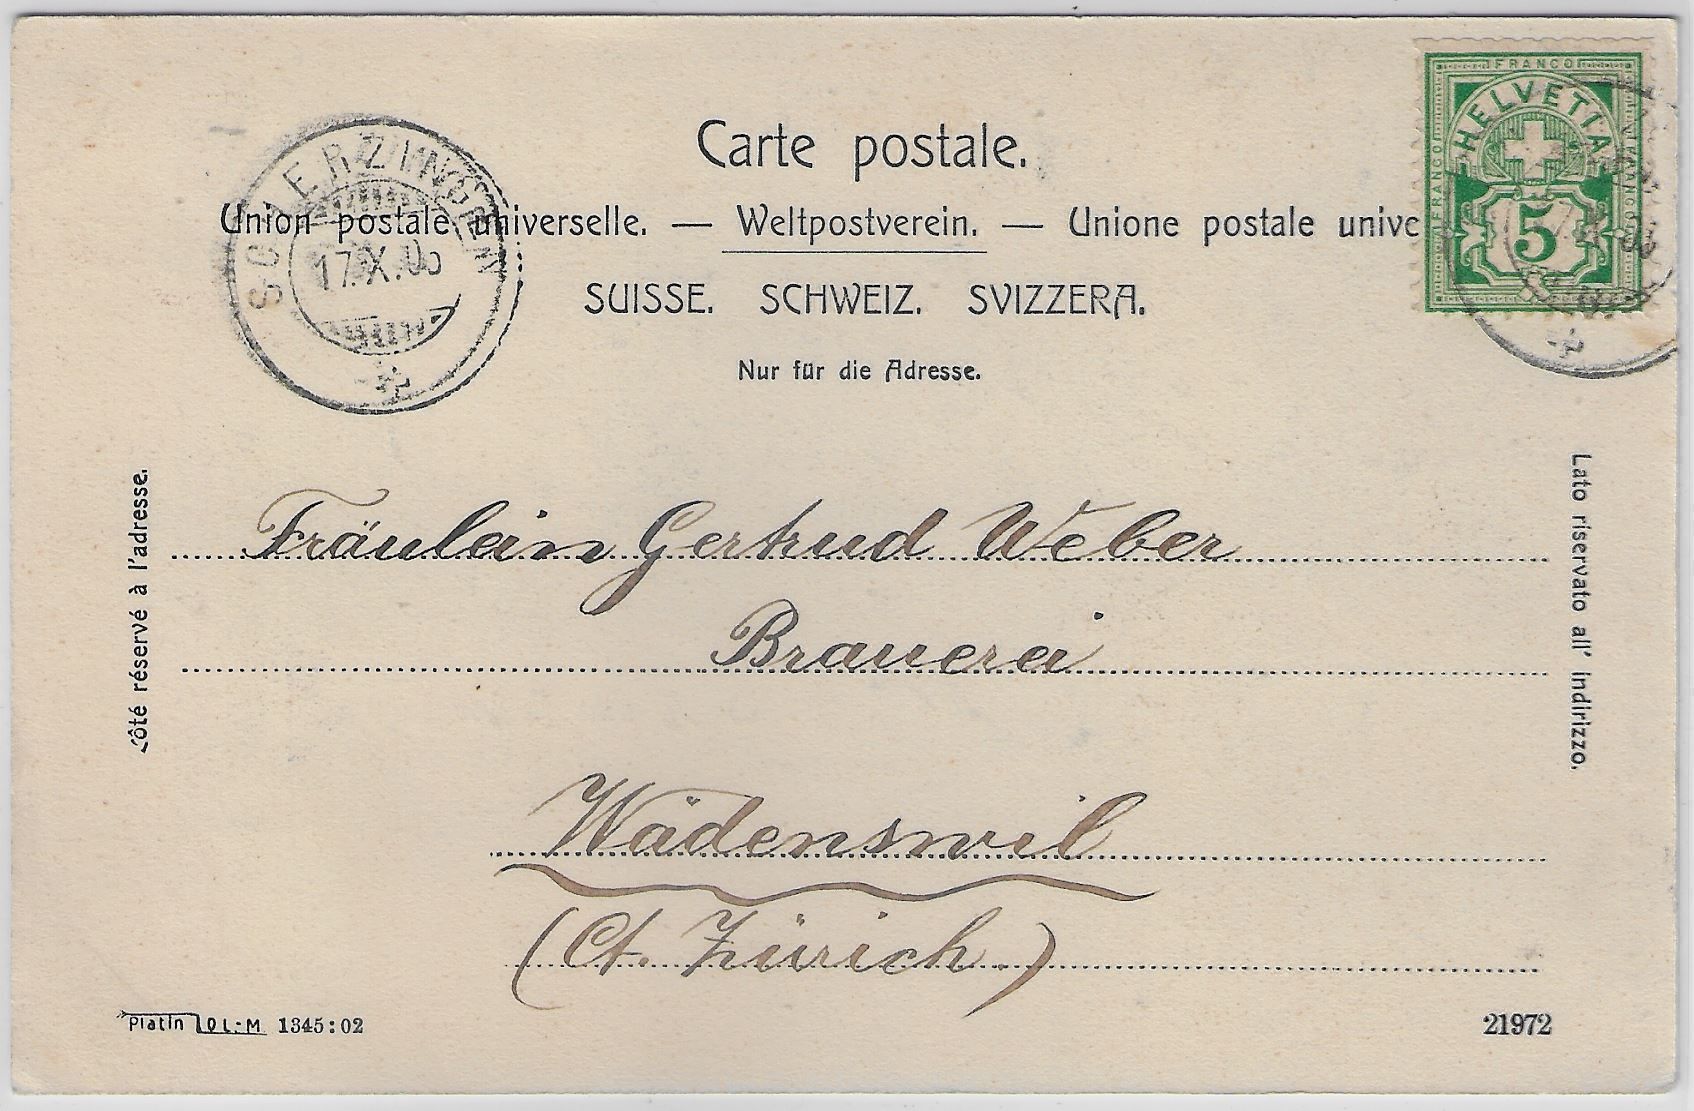 Carte postale.
Union postale universelle. — Weltpostverein. — Unione postale unive
SUISSE. SCHWEIZ. SVIZZERA.
Nur für die Adresse.
FRANCO
HELVETIA
FRANCO
FRANCO
5
SCHERZINGEN
17.X.05
Côté réservé à l'adresse.
Lato riservato all' indirizzo.
Fräulein Gertrud Weber
Brauerei
Wädenswil
(Ct. Zürich)
Platin OL-M 1345:02
21972